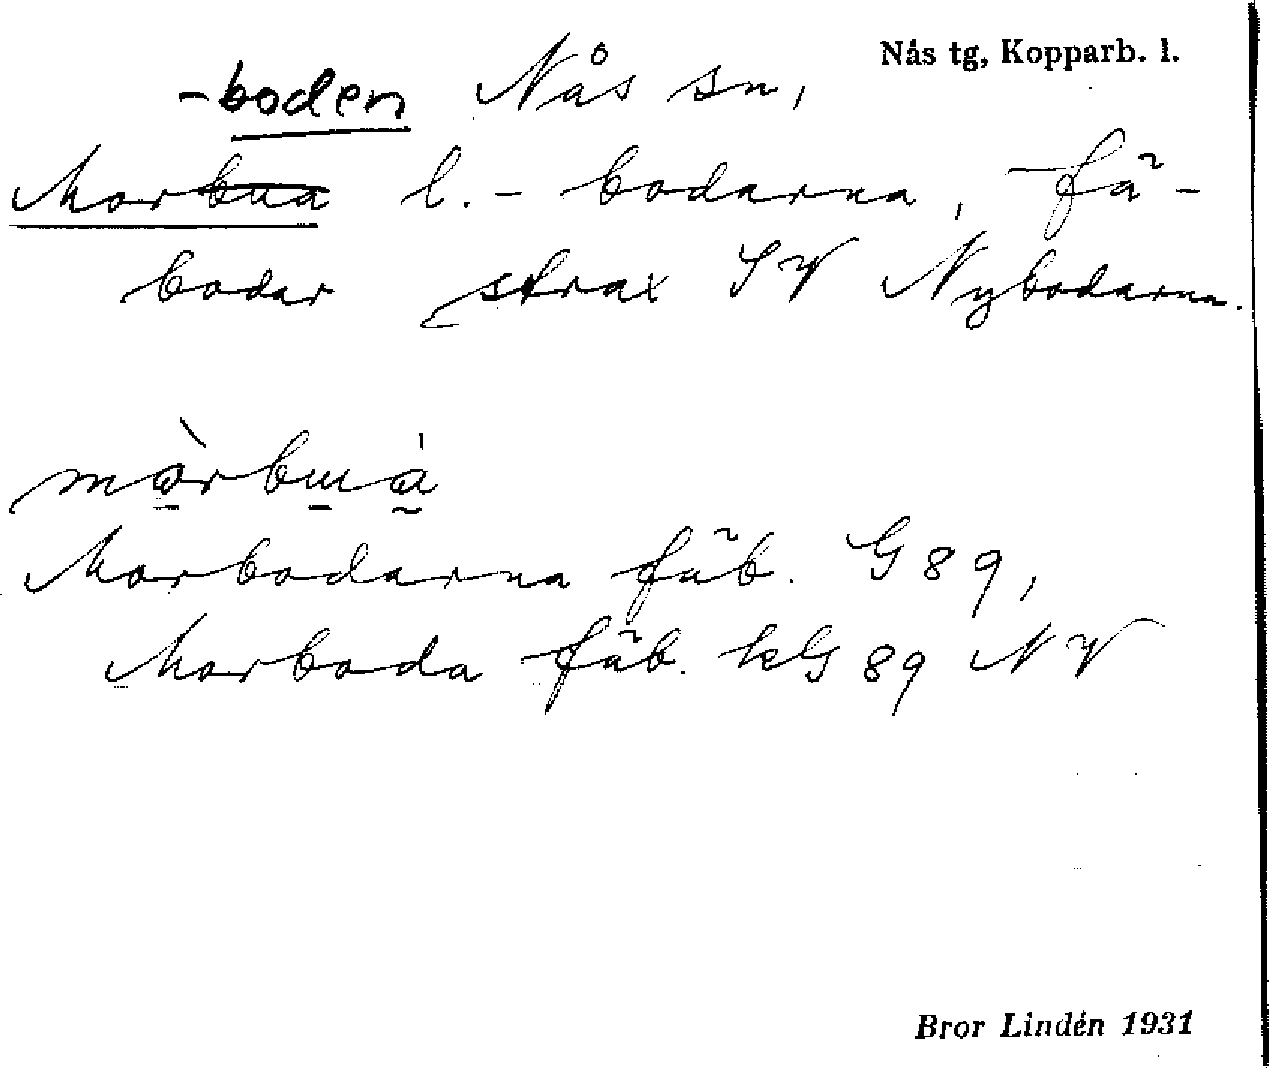 Nås tg, Kopparb. l.
-boden Nås sn,
Morbua l. - bodarna, fä-
bodar strax SV Nybodarna.
mòrbuá
Morbodarna fäb. G89,
Morboda fäb. kG89 NV
Bror Lindén 1931